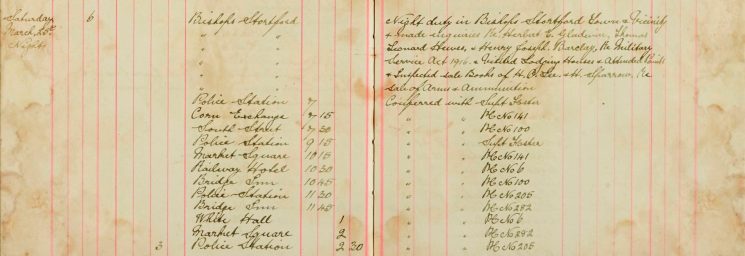 Saturday 6 Bishops Stortford Night duty in Bishops Stortford Town & Vicinity
March 25th " " & made inquiries Re Herbert E. Gladwin, Thomas
Night " " Leonard Hewes, & Henry Joseph Barclay, Re Military
" " Service Act 1916. & Visited Lodging Houses & Attended Points
" " & Inspected sale Books of H. P. Lee & H. Sparrow, Re
" " sale of Arms & Ammunition
Police Station 7 Conferred with Supt Foster
Corn Exchange 7 15 " " PC No 141
South Street 7 30 " " PC No 100
Police Station 9 15 " " Supt Foster
Market Square 10 15 " " PC No 141
Railway Hotel 10 30 " " PC No 6
Bridge Inn 10 45 " " PC No 100
Police Station 11 30 " " PC No 205
Bridge Inn 11 45 " " PC No 282
White Hall 1 " " PC No 6
Market Square 2 " " PC No 292
3 Police Station 2 30 " " PC No 205